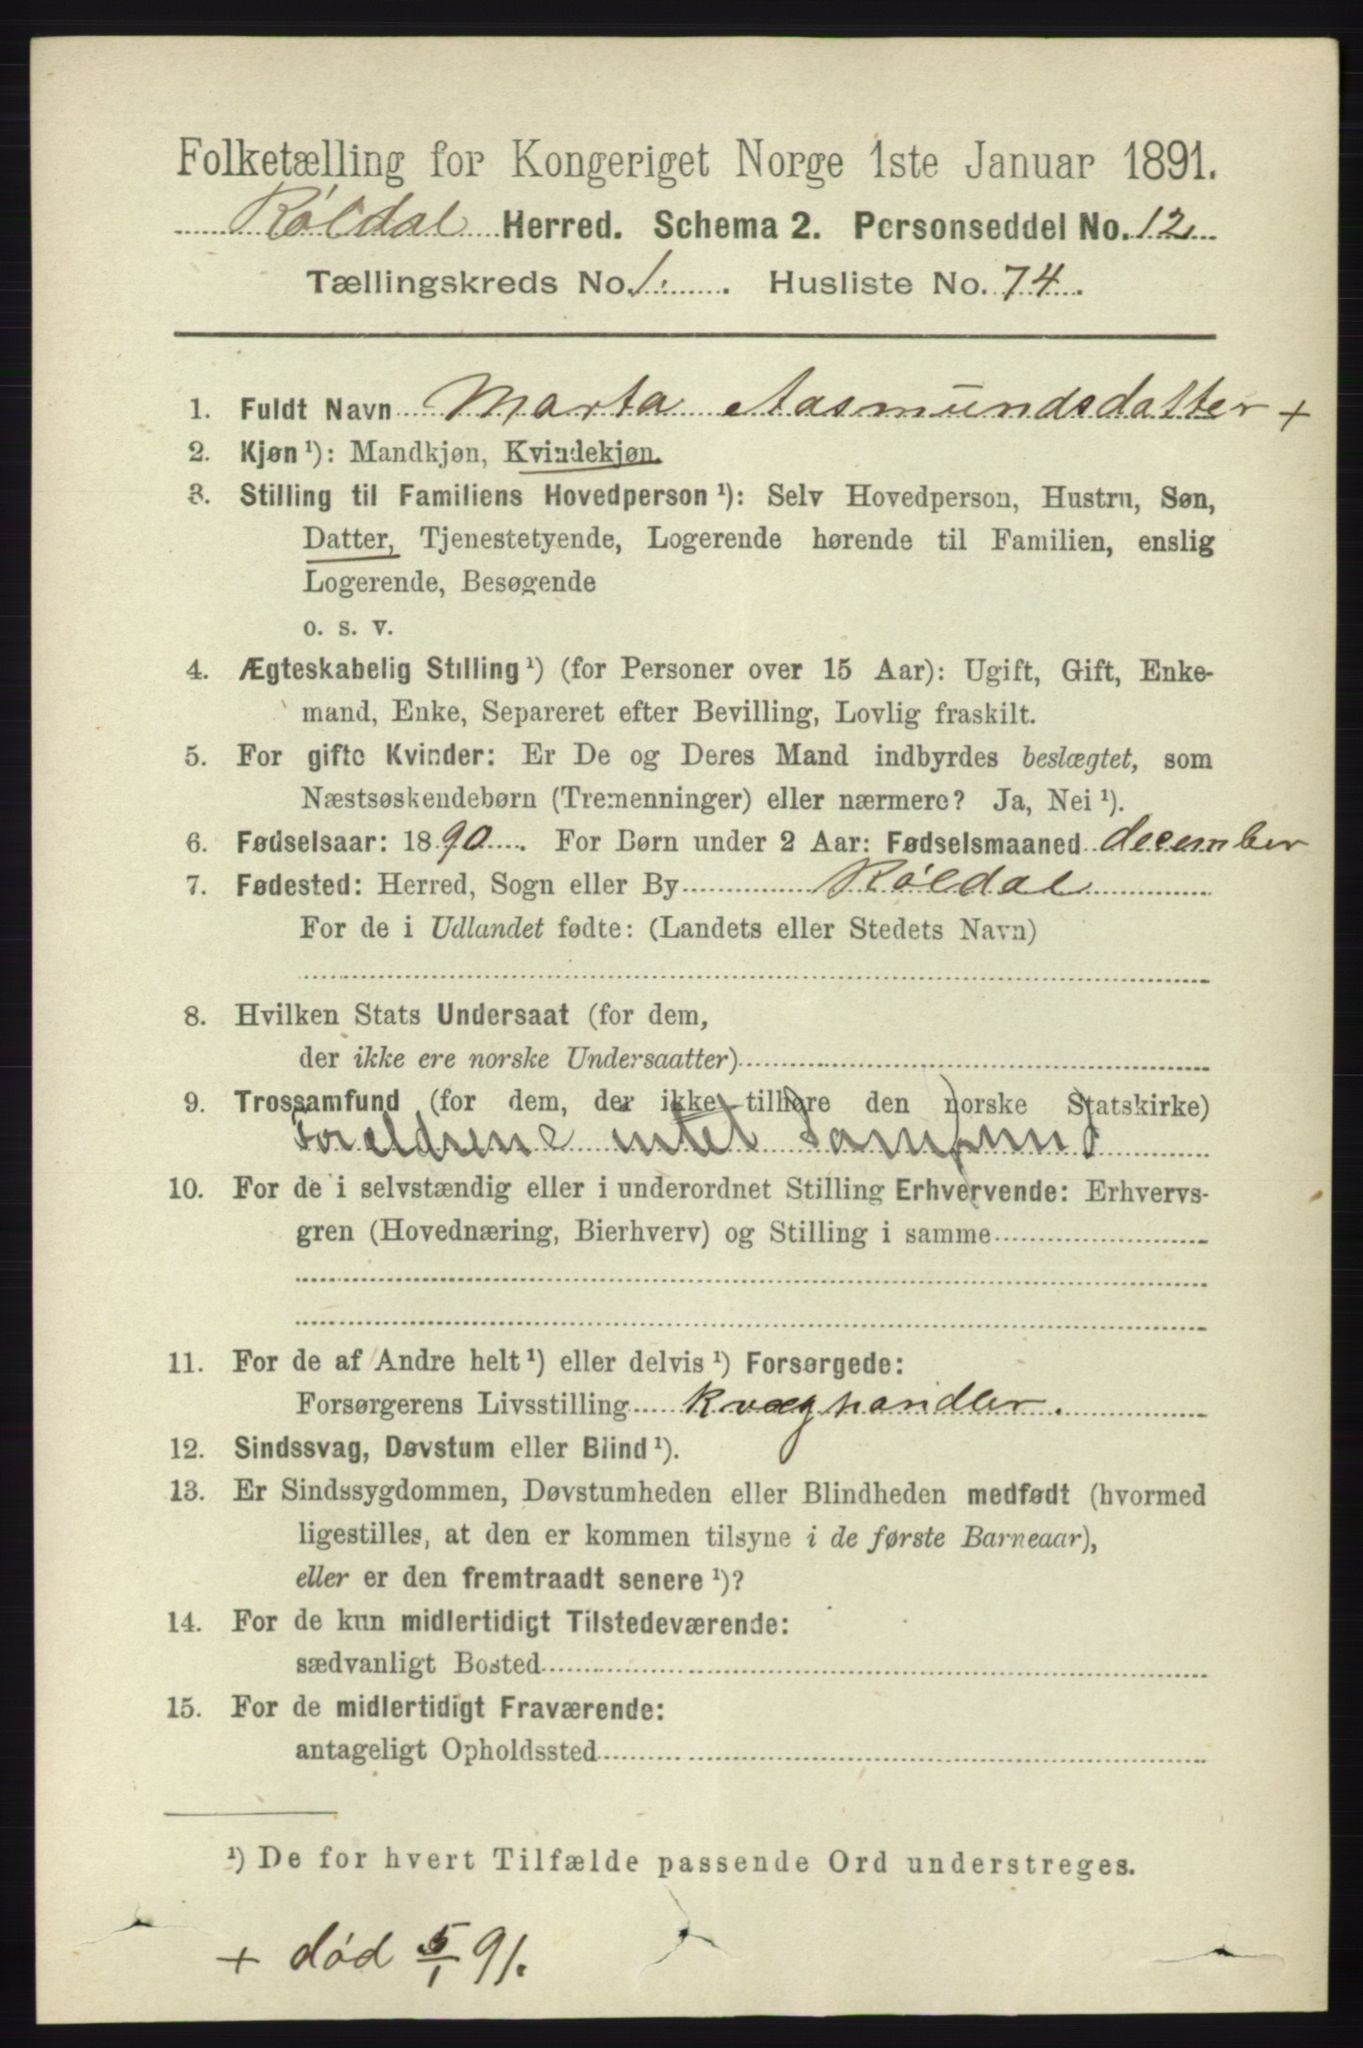 Folketælling for Kongeriget Norge 1ste Januar 1891.
Røldal Herred. Schema 2. Personseddel No. 12
Tællingskreds No. 1. Husliste No. 74.
1. Fuldt Navn Marta Aasmundsdatter +
2. Kjøn ¹): Mandkjøn, Kvindekjøn.
3. Stilling til Familiens Hovedperson ¹): Selv Hovedperson, Hustru, Søn,
Datter, Tjenestetyende, Logerende hørende til Familien, enslig
Logerende, Besøgende
o. s. v.
4. Ægteskabelig Stilling ¹) (for Personer over 15 Aar): Ugift, Gift, Enke-
mand, Enke, Separeret efter Bevilling, Lovlig fraskilt.
5. For gifte Kvinder: Er De og Deres Mand indbyrdes beslægtet, som
Næstsøskendebørn (Tremenninger) eller nærmere? Ja, Nei ¹).
6. Fødselsaar: 1890. For Børn under 2 Aar: Fødselsmaaned december
7. Fødested: Herred, Sogn eller By Røldal
For de i Udlandet fødte: (Landets eller Stedets Navn)
8. Hvilken Stats Undersaat (for dem,
der ikke ere norske Undersaatter)
9. Trossamfund (for dem, der ikke tilhøre den norske Statskirke)
Foreldrene intet Samfund
10. For de i selvstændig eller i underordnet Stilling Erhvervende: Erhvervs-
gren (Hovednæring, Bierhverv) og Stilling i samme
11. For de af Andre helt ¹) eller delvis ¹) Forsørgede:
Forsørgerens Livsstilling Kvæghandler.
12. Sindssvag, Døvstum eller Blind ¹).
13. Er Sindssygdommen, Døvstumheden eller Blindheden medfødt (hvormed
ligestilles, at den er kommen tilsyne i de første Barneaar),
eller er den fremtraadt senere ¹)?
14. For de kun midlertidigt Tilstedeværende:
sædvanligt Bosted
15. For de midlertidigt Fraværende:
antageligt Opholdssted
¹) De for hvert Tilfælde passende Ord understreges.
+ død 5/1 91.